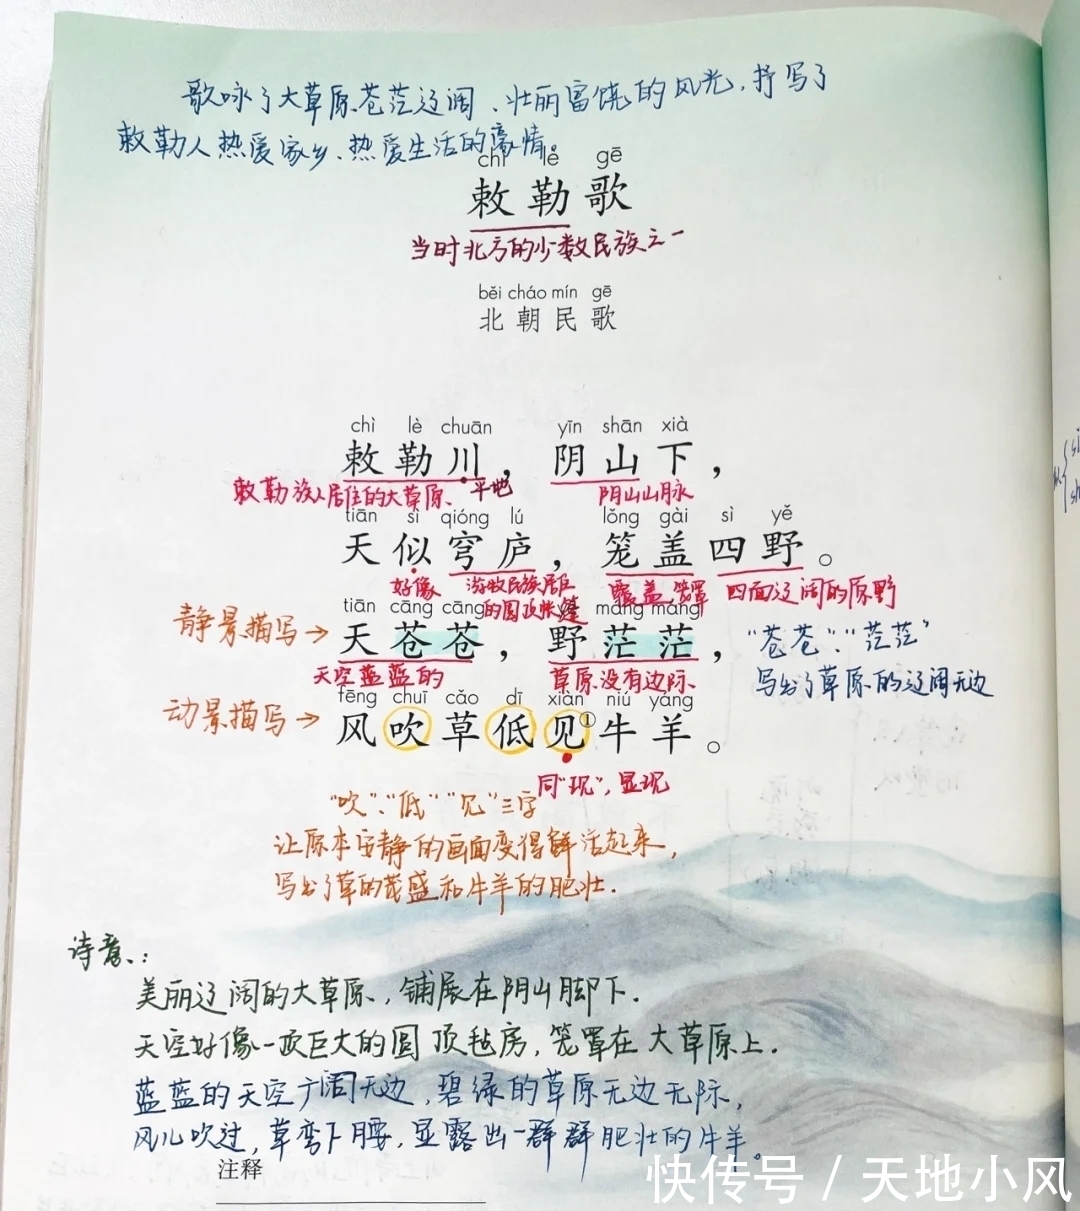 歌咏了大草原苍茫辽阔、壮丽富饶的风光,抒写了
敕勒人热爱家乡、热爱生活的豪情。
chì lè gē
敕勒歌
当时北方的少数民族之一
běi cháo mín gē
北朝民歌
chì lè chuān yīn shān xià
敕勒川,阴山下,
敕勒族人居住的大草原、平地 阴山山脉
tiān sì qióng lú lǒng gài sì yě
天似穹庐,笼盖四野。
好像 游牧民族居住的圆顶帐篷 覆盖 笼罩 四面辽阔的原野
tiān cāng cāng yě máng máng
静景描写→ 天苍苍,野茫茫, “苍苍”“茫茫”
天空蓝蓝的 草原没有边际 写出了草原的辽阔无边
fēng chuī cǎo dī xiàn niú yáng
动景描写→ 风吹草低见①牛羊。
同“现”,显现
“吹”、“低”“见”三字
让原本安静的画面变得鲜活起来,
写出了草的茂盛和牛羊的肥壮.
诗意:
美丽辽阔的大草原,铺展在阴山脚下.
天空好像一顶巨大的圆顶毡房,笼罩在大草原上.
蓝蓝的天空广阔无边,碧绿的草原无边无际,
风儿吹过,草弯下腰,显露出一群群肥壮的牛羊。
注释
快传号 / 天地小风